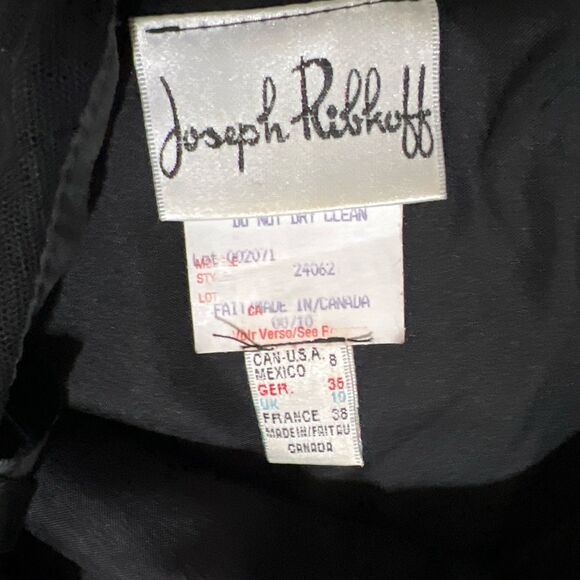 Joseph Ribkoff
DO NOT DRY CLEAN
Lot 002071
STY 24062
LOT
FAIT/MADE IN/CANADA
CA
00/10
Voir Verso/See
CAN-U.S.A. 8
MEXICO
GER. 36
UK 10
FRANCE 38
MADE IN/FAIT AU
CANADA